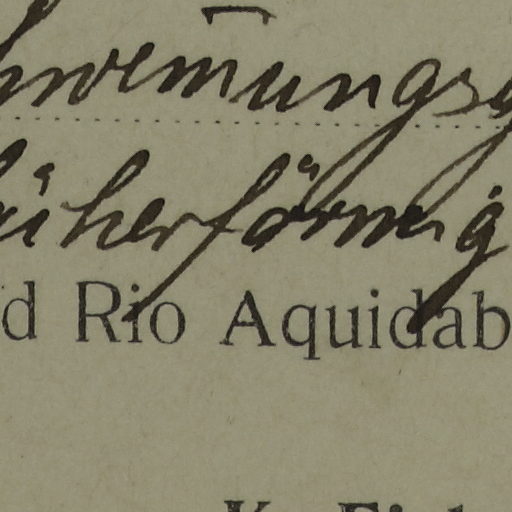 hwemungsg
äherförmig
d Rio Aquidab